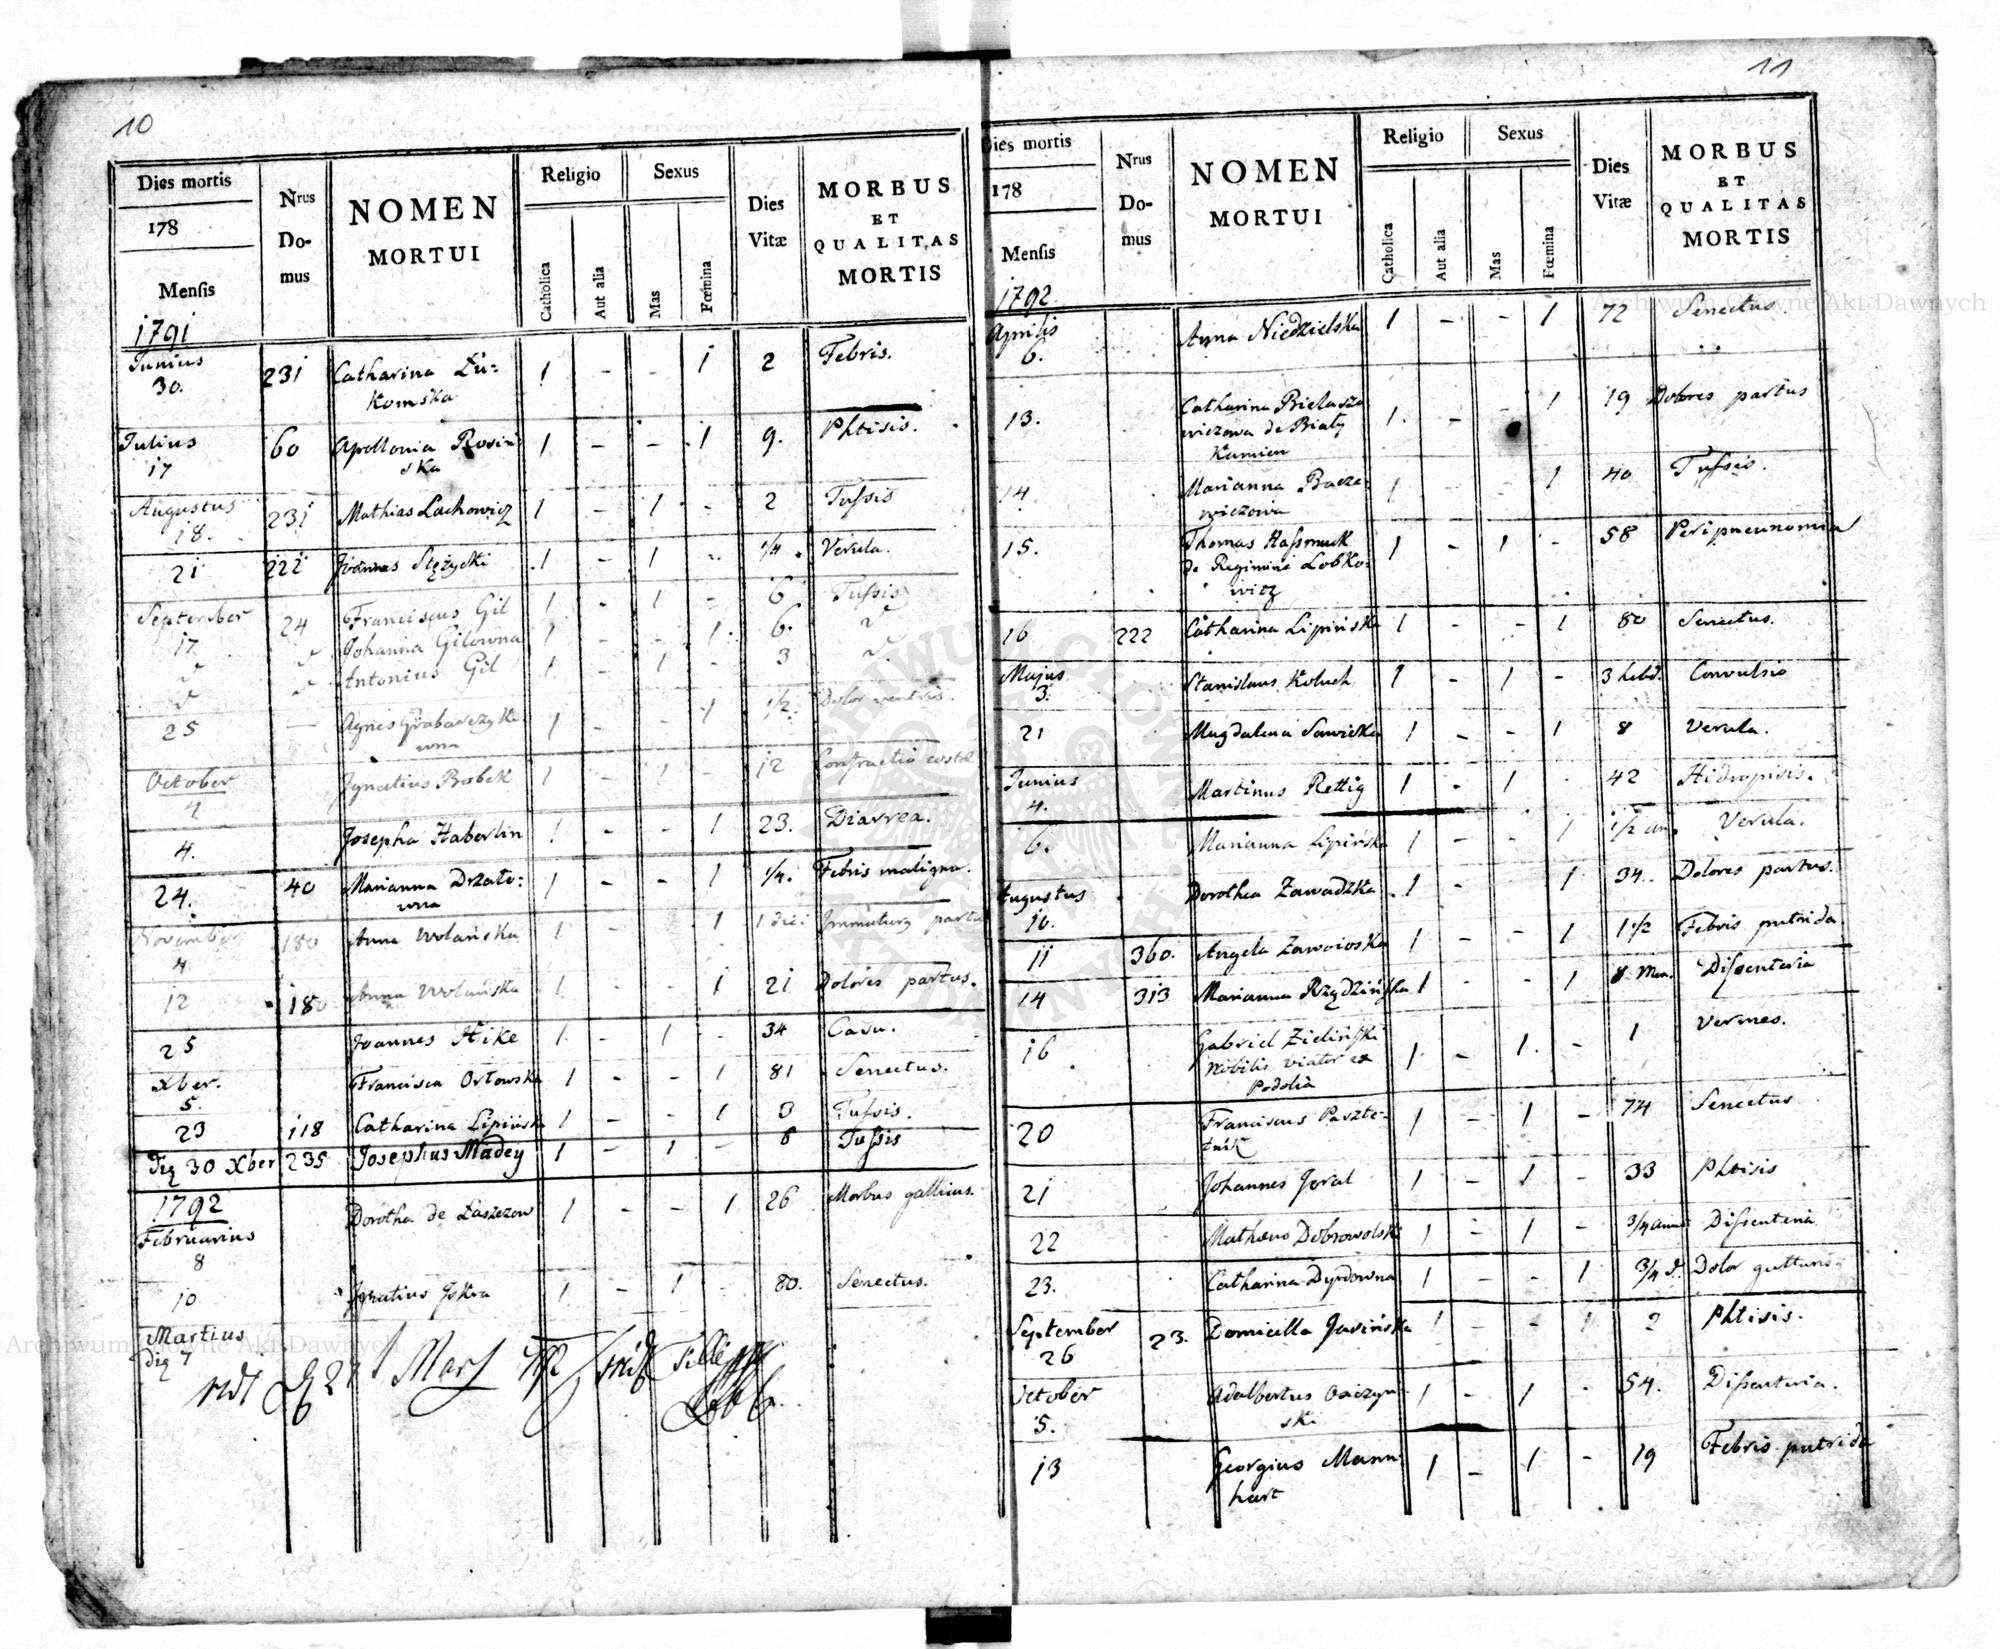 10
Dies mortis
178
Mensis
Nrus Do- mus
NOMEN
MORTUI
Religio
Catholica
Aut alia
Sexus
Mas
Fœmina
Dies
Vitæ
MORBUS
ET
QUALITAS
MORTIS
1791
Junius 30. 231 Catharina Łu= 1 - - 1 2 Febris.
komska
Julius 17 60 Apollonia Rosin 1 - - 1 9. Phtisis.
ska
Augustus 18. 231 Mathias Lachowicz 1 - 1 - 2 Tussis
21 222 Joannes Stężycki 1 - 1 - 1/4 Verula.
September 17. 24 Franciscus Gil 1 - 1 - 6 Tussis
Johanna Gilowna 1 - - 1 6.
Antonius Gil 1 - 1 - 3
25 - Agnes Grabarczyko 1 - - 1 1/2. Dolor ventris.
wna
October 4 Ignatius Bobek 1 - 1 - 12 Confractio costa
4. Josepha Haberlin 1 - - 1 23. Diarrea.
24. 40 Marianna Drzało= 1 - - 1 1/4. Febris maligna.
wna
November 4 180 Anna Wolańska 1 - - 1 1 diei
12 180 Anna Wolańska 1 - - 1 21 Dolores partus.
25 Joannes Hike 1 - 1 - 34 Casu.
Xber. 5. Francisca Orłowska 1 - - 1 81 Senectus.
23 118 Catharina Lipińska 1 - - 1 3 Tussis.
Die 30 Xber 235 Josephus Madey 1 - 1 - 6 Tussis
1792
Februarius 8 Dorothea de Łaszczow 1 - - 1 26 Morbus gallicus.
10 Ignatius Iskra 1 - 1 - 80. Senectus.
Martius
Die 7
11
Dies mortis
178
Mensis
Nrus Do- mus
NOMEN
MORTUI
Religio
Catholica
Aut alia
Sexus
Mas
Fœmina
Dies
Vitæ
MORBUS
ET
QUALITAS
MORTIS
1792
Aprilis 6. Anna Niedzielska 1 - - 1 72 Senectus
13. Catharina Bielasze 1. - - 1 19 Dolores partus
wiczowa de Biały
Kamien
14 Marianna Bacze= 1 1 40 Tussis.
wiczowa
15. Thomas Hassmuck 1 - 1 - 58 Peripneunomia
de Regimine Lobko=
witz
16 222 Catharina Lipińska 1 - - 1 80 Senectus.
Majus 3. Stanislaus Koluch 1 - 1 - 3 hebd. Convulsio
21 Magdalena Sawicka 1 - - 1 8 Verula.
Junius 4. Martinus Rettig 1 - 1 - 42 Hidropisis.
6. Marianna Lipińska 1 - - 1 1/2 an. Verula.
Augustus 10. Dorothea Zawadzka 1 - 1 34. Dolores partus.
11 360. Angela Zawoioska 1 - - 1 1 1/2 Febris putrida.
14 313 Marianna Rzędzińska 1 - - 1 8 Men. Dissenteria
16 Gabriel Zieliński 1. - 1. - 1 Vermes.
Nobilis viator ex
Podolia
20 Franciscus Paszte= 1 - 1 - 74 Senectus
tnik
21 Johannes Goral 1 - 1 - 33 Phtisis
22 Mathæus Dobrowolski 1 - 1 - 3/4 anni Dissenteria
23. Catharina Dyrdowna 1 - - 1 3/4 Dolor gutturis
September 26 23. Domicella Jasińska 1 - - 1 2 Phtisis.
October 5. Adalbertus Osiczyn 1 - 1 - 54. Dissenteria.
ski
13 Georgius Mann 1 - 1 - 19 Febris putrida
hart
Archiwum Główne Akt Dawnych
Archiwum Główne Akt Dawnych
ARCHIWUM GŁÓWNE AKT DAWNYCH